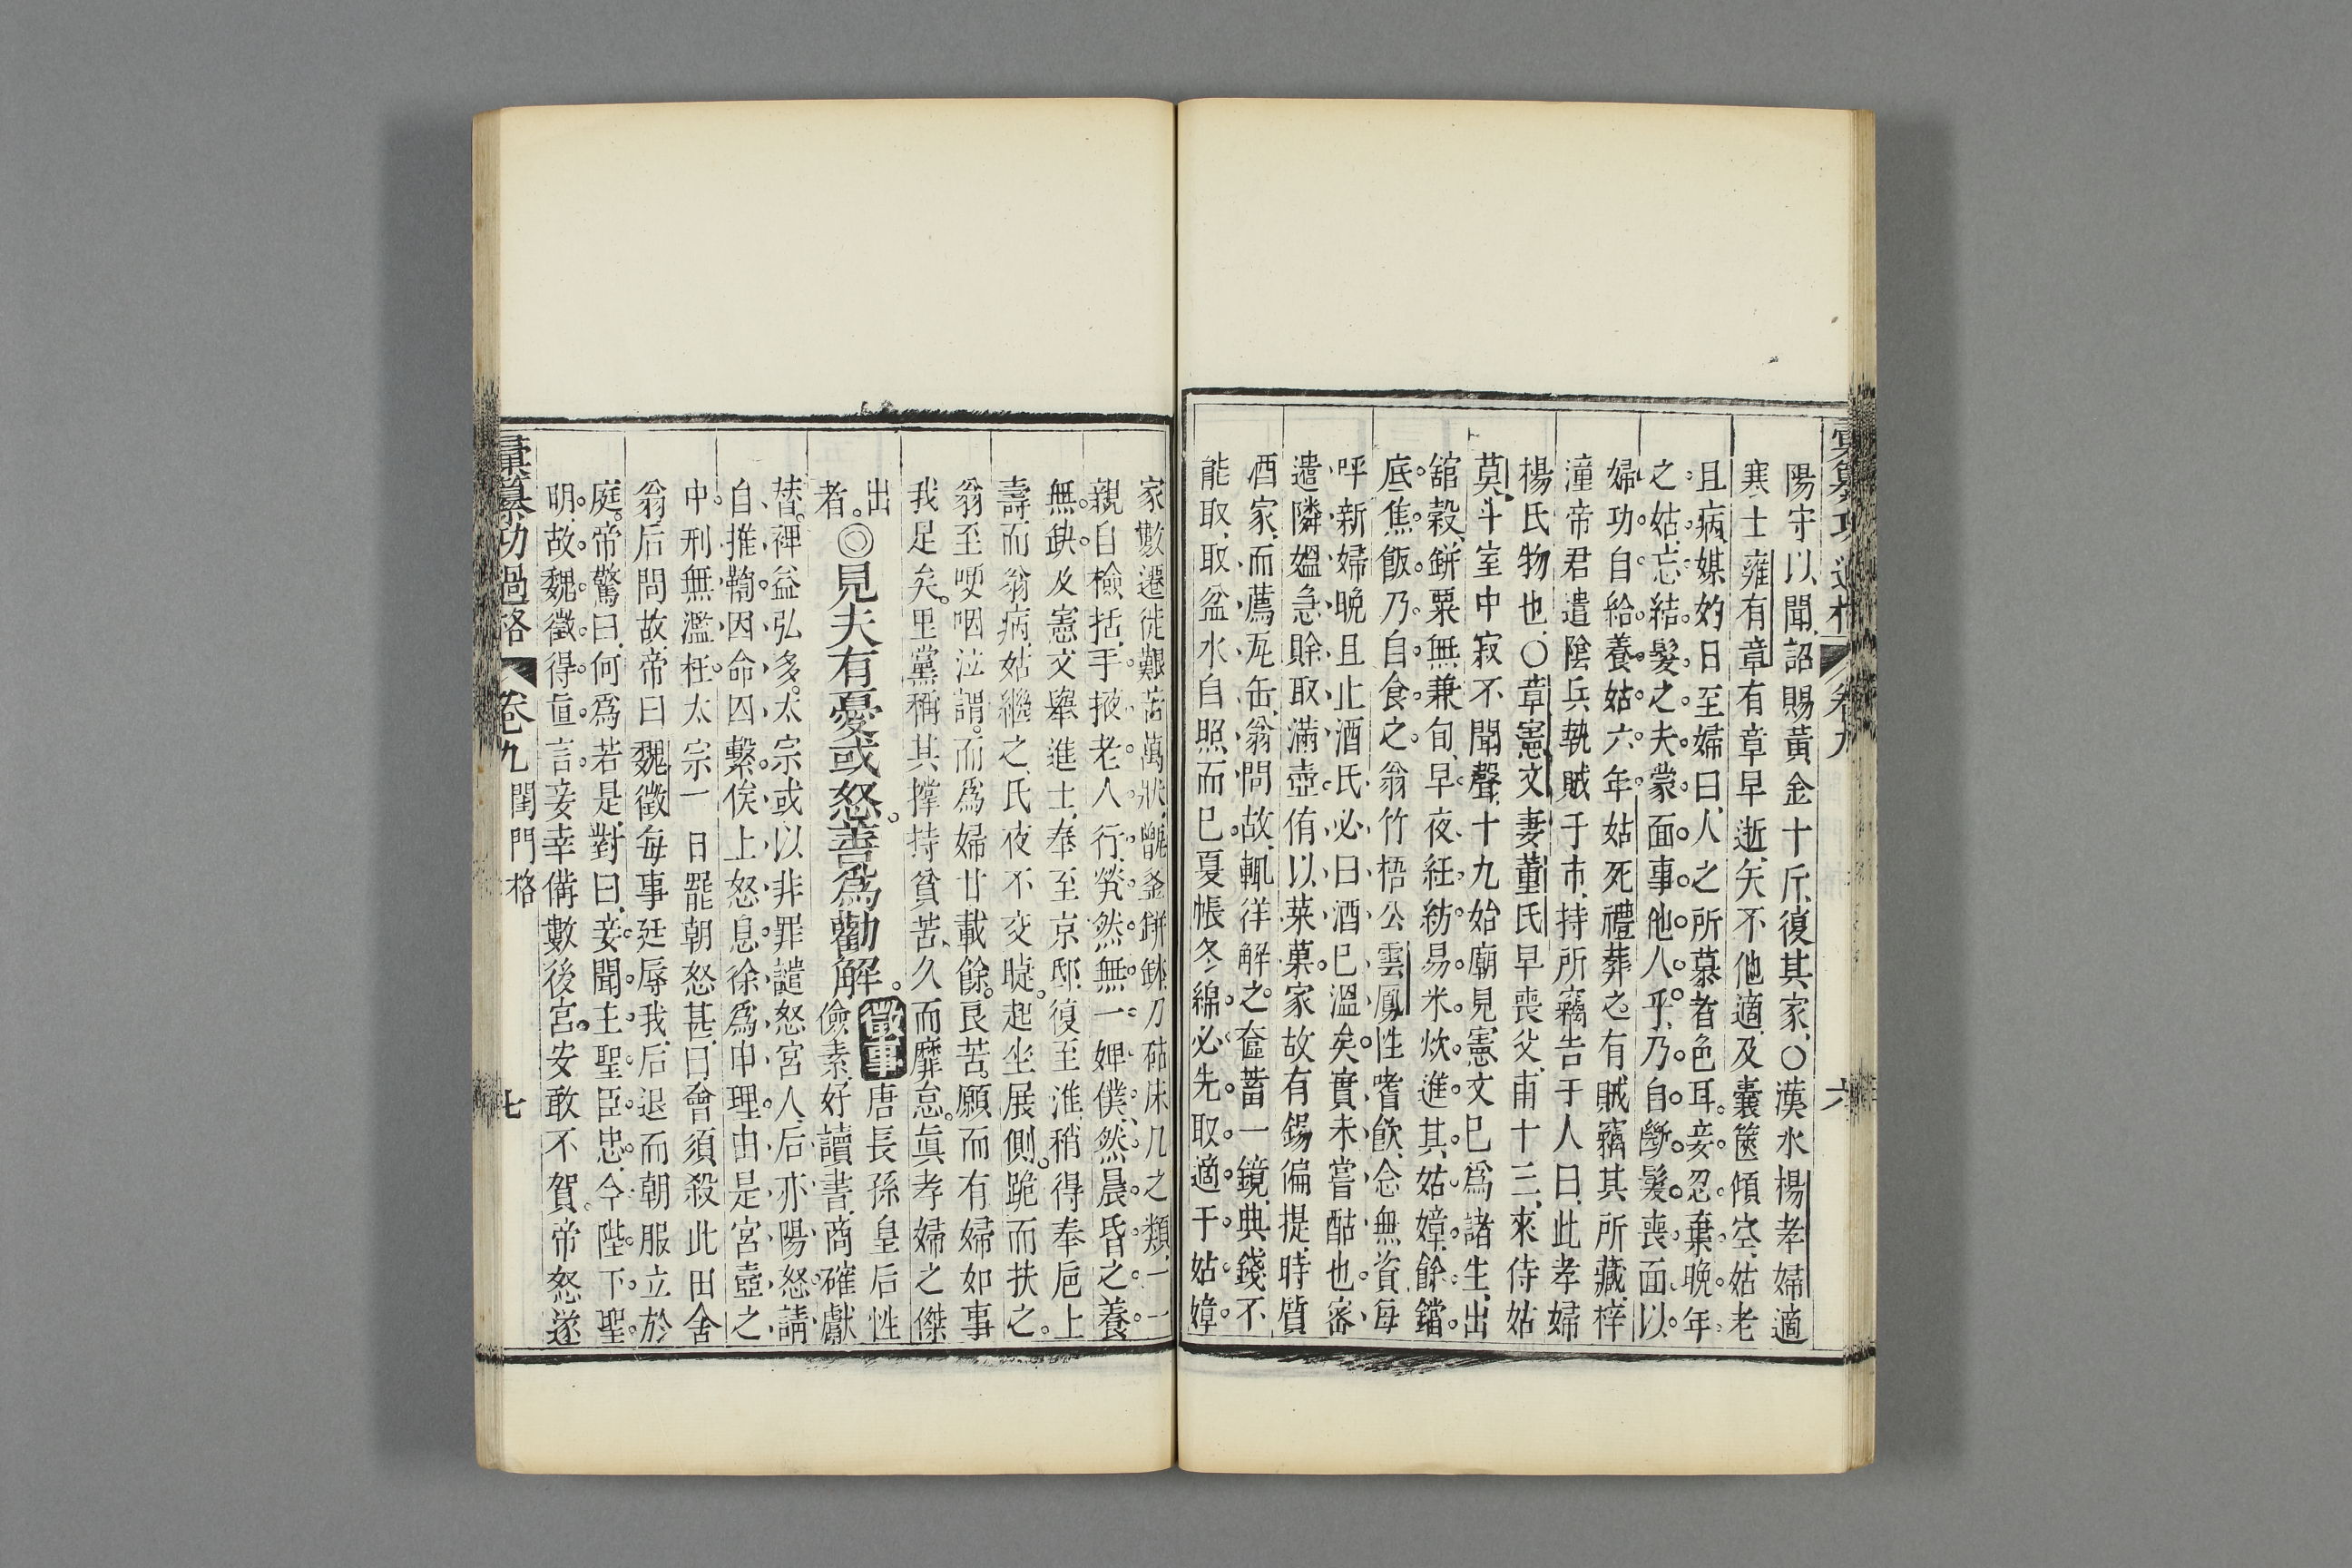 彙纂功過格 卷九 六
陽守以聞詔賜黃金十斤復其家○漢水楊孝婦適
寒士雍有章有章早逝矢不他適及囊篋傾空姑老
且病媒妁日至婦曰人之所慕者色耳妾忍棄晚年
之姑忘結髮之夫蒙面事他人乎乃自斷髮喪面以
婦功自給養姑六年姑死禮葬之有賊竊其所藏梓
潼帝君遣陰兵執賊于市持所竊告于人曰此孝婦
楊氏物也○章憲文妻董氏早喪父甫十三來侍姑
莫斗室中寂不聞聲十九始廟見憲文巳為諸生出
舘穀餅粟無兼旬早夜紝紡易米炊進其姑嫜餘鐺
底焦飯乃自食之翁竹梧公雲鳳性嗜飲念無資每
呼新婦晚且止酒氏必曰酒巳溫矣實未嘗酤也密
遣隣媼急賖取滿壺侑以菜菓家故有錫偏提時質
酒家而薦瓦缶翁問故輒徉解之奩蓄一鏡典錢不
能取取盆水自照而巳夏帳冬綿必先取適于姑嫜
家數遷徙艱苦萬狀甑釜餅缽刀砧床几之類一一
親自檢括手掖老人行煢然無一婢僕然晨昏之養
無缺及憲文舉進士奉至京邸復至淮稍得奉巵上
壽而翁病姑繼之氏夜不交睫起坐展側跪而扶之
翁至哽咽泣謂而為婦廿載餘良苦願而有婦如事
我足矣里黨稱其撑持貧苦久而靡怠眞孝婦之傑
出者◎見夫有憂或怒善為勸解徵事唐長孫皇后性
儉素好讀書商確獻
替裨益弘多太宗或以非罪譴怒宮人后亦陽怒請
自推鞫因命囚繫俟上怒息徐為申理由是宮壼之
中刑無濫枉太宗一日罷朝怒甚曰會須殺此田舍
翁后問故帝曰魏徵每事廷辱我后退而朝服立於
庭帝驚曰何為若是對曰妾聞主聖臣忠今陛下聖
明故魏徵得直言妾幸備數後宮安敢不賀帝怒遂
彙纂功過格 卷九 閨門格 七